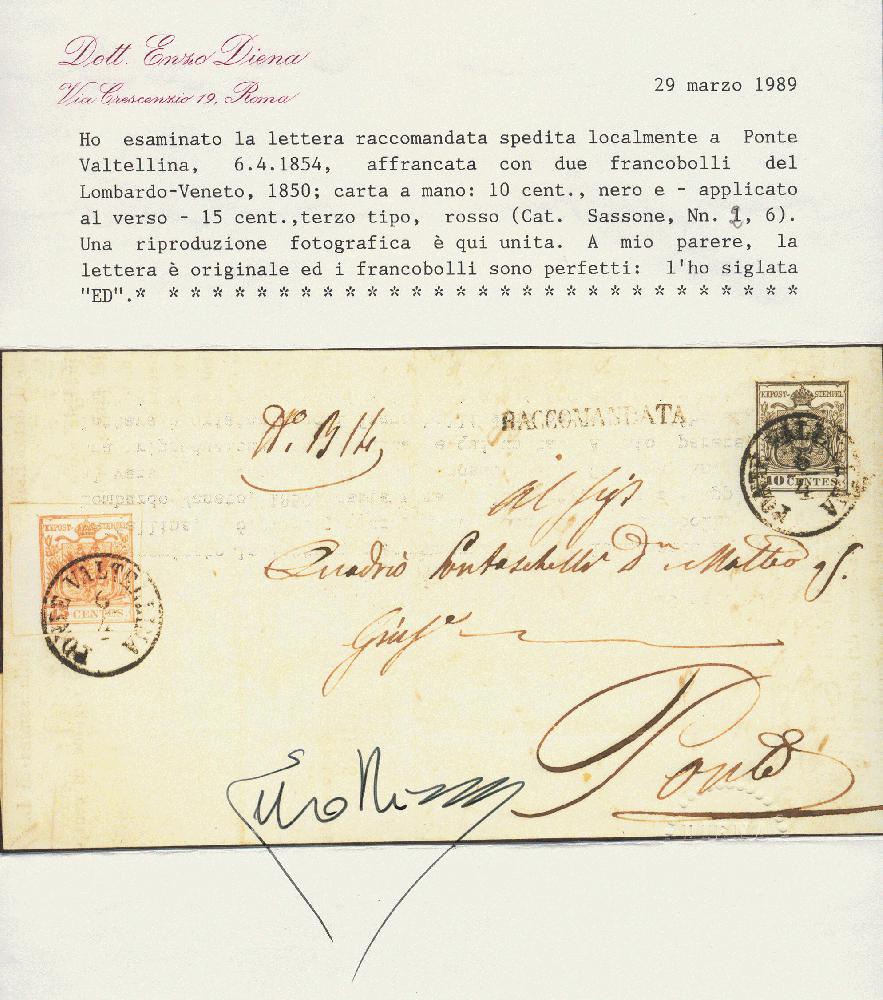 Dott. Enzo Diena
Via Crescenzio 19, Roma
29 marzo 1989
Ho esaminato la lettera raccomandata spedita localmente a Ponte
Valtellina, 6.4.1854, affrancata con due francobolli del
Lombardo-Veneto, 1850; carta a mano: 10 cent., nero e - applicato
al verso - 15 cent.,terzo tipo, rosso (Cat. Sassone, Nn. 2, 6).
Una riproduzione fotografica è qui unita. A mio parere, la
lettera è originale ed i francobolli sono perfetti: l'ho siglata
"ED".* * * * * * * * * * * * * * * * * * * * * * * * * * * * * *
KPOST-STEMPEL
10 CENTES
PONTE VALTELLINA
6
4
RACCOMANDATA
al Sigr
Quadrio Dn Matteo
Ponte
KPOST-STEMPEL
15 CENTES
PONTE VALTELLINA
6
4